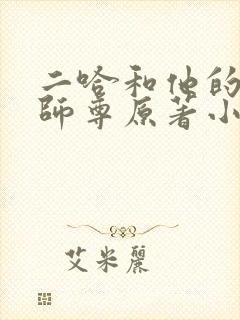 二哈和他的
師尊原著小
艾米麗